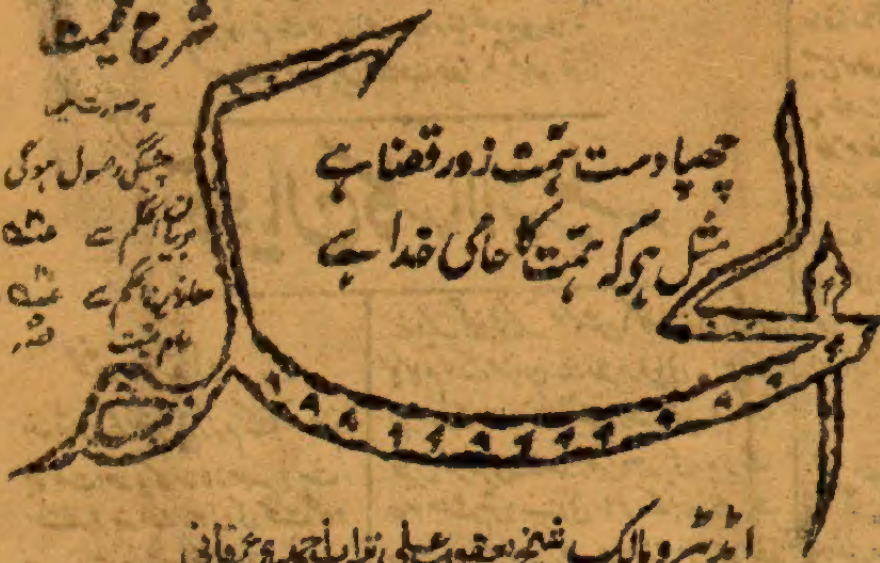 شرح قیمت
ہر صورت میں
پیشگی وصول ہوگی
مربیان الحکم سے
معاونین الحکم سے
عام قیمت
چھپا دست ہمت زور قضا ہے
مثل ہے کہ ہمت کا حامی خدا ہے
الحکم
اڈیٹر و مالک شیخ یعقوب علی تراب احمدی عرفانی